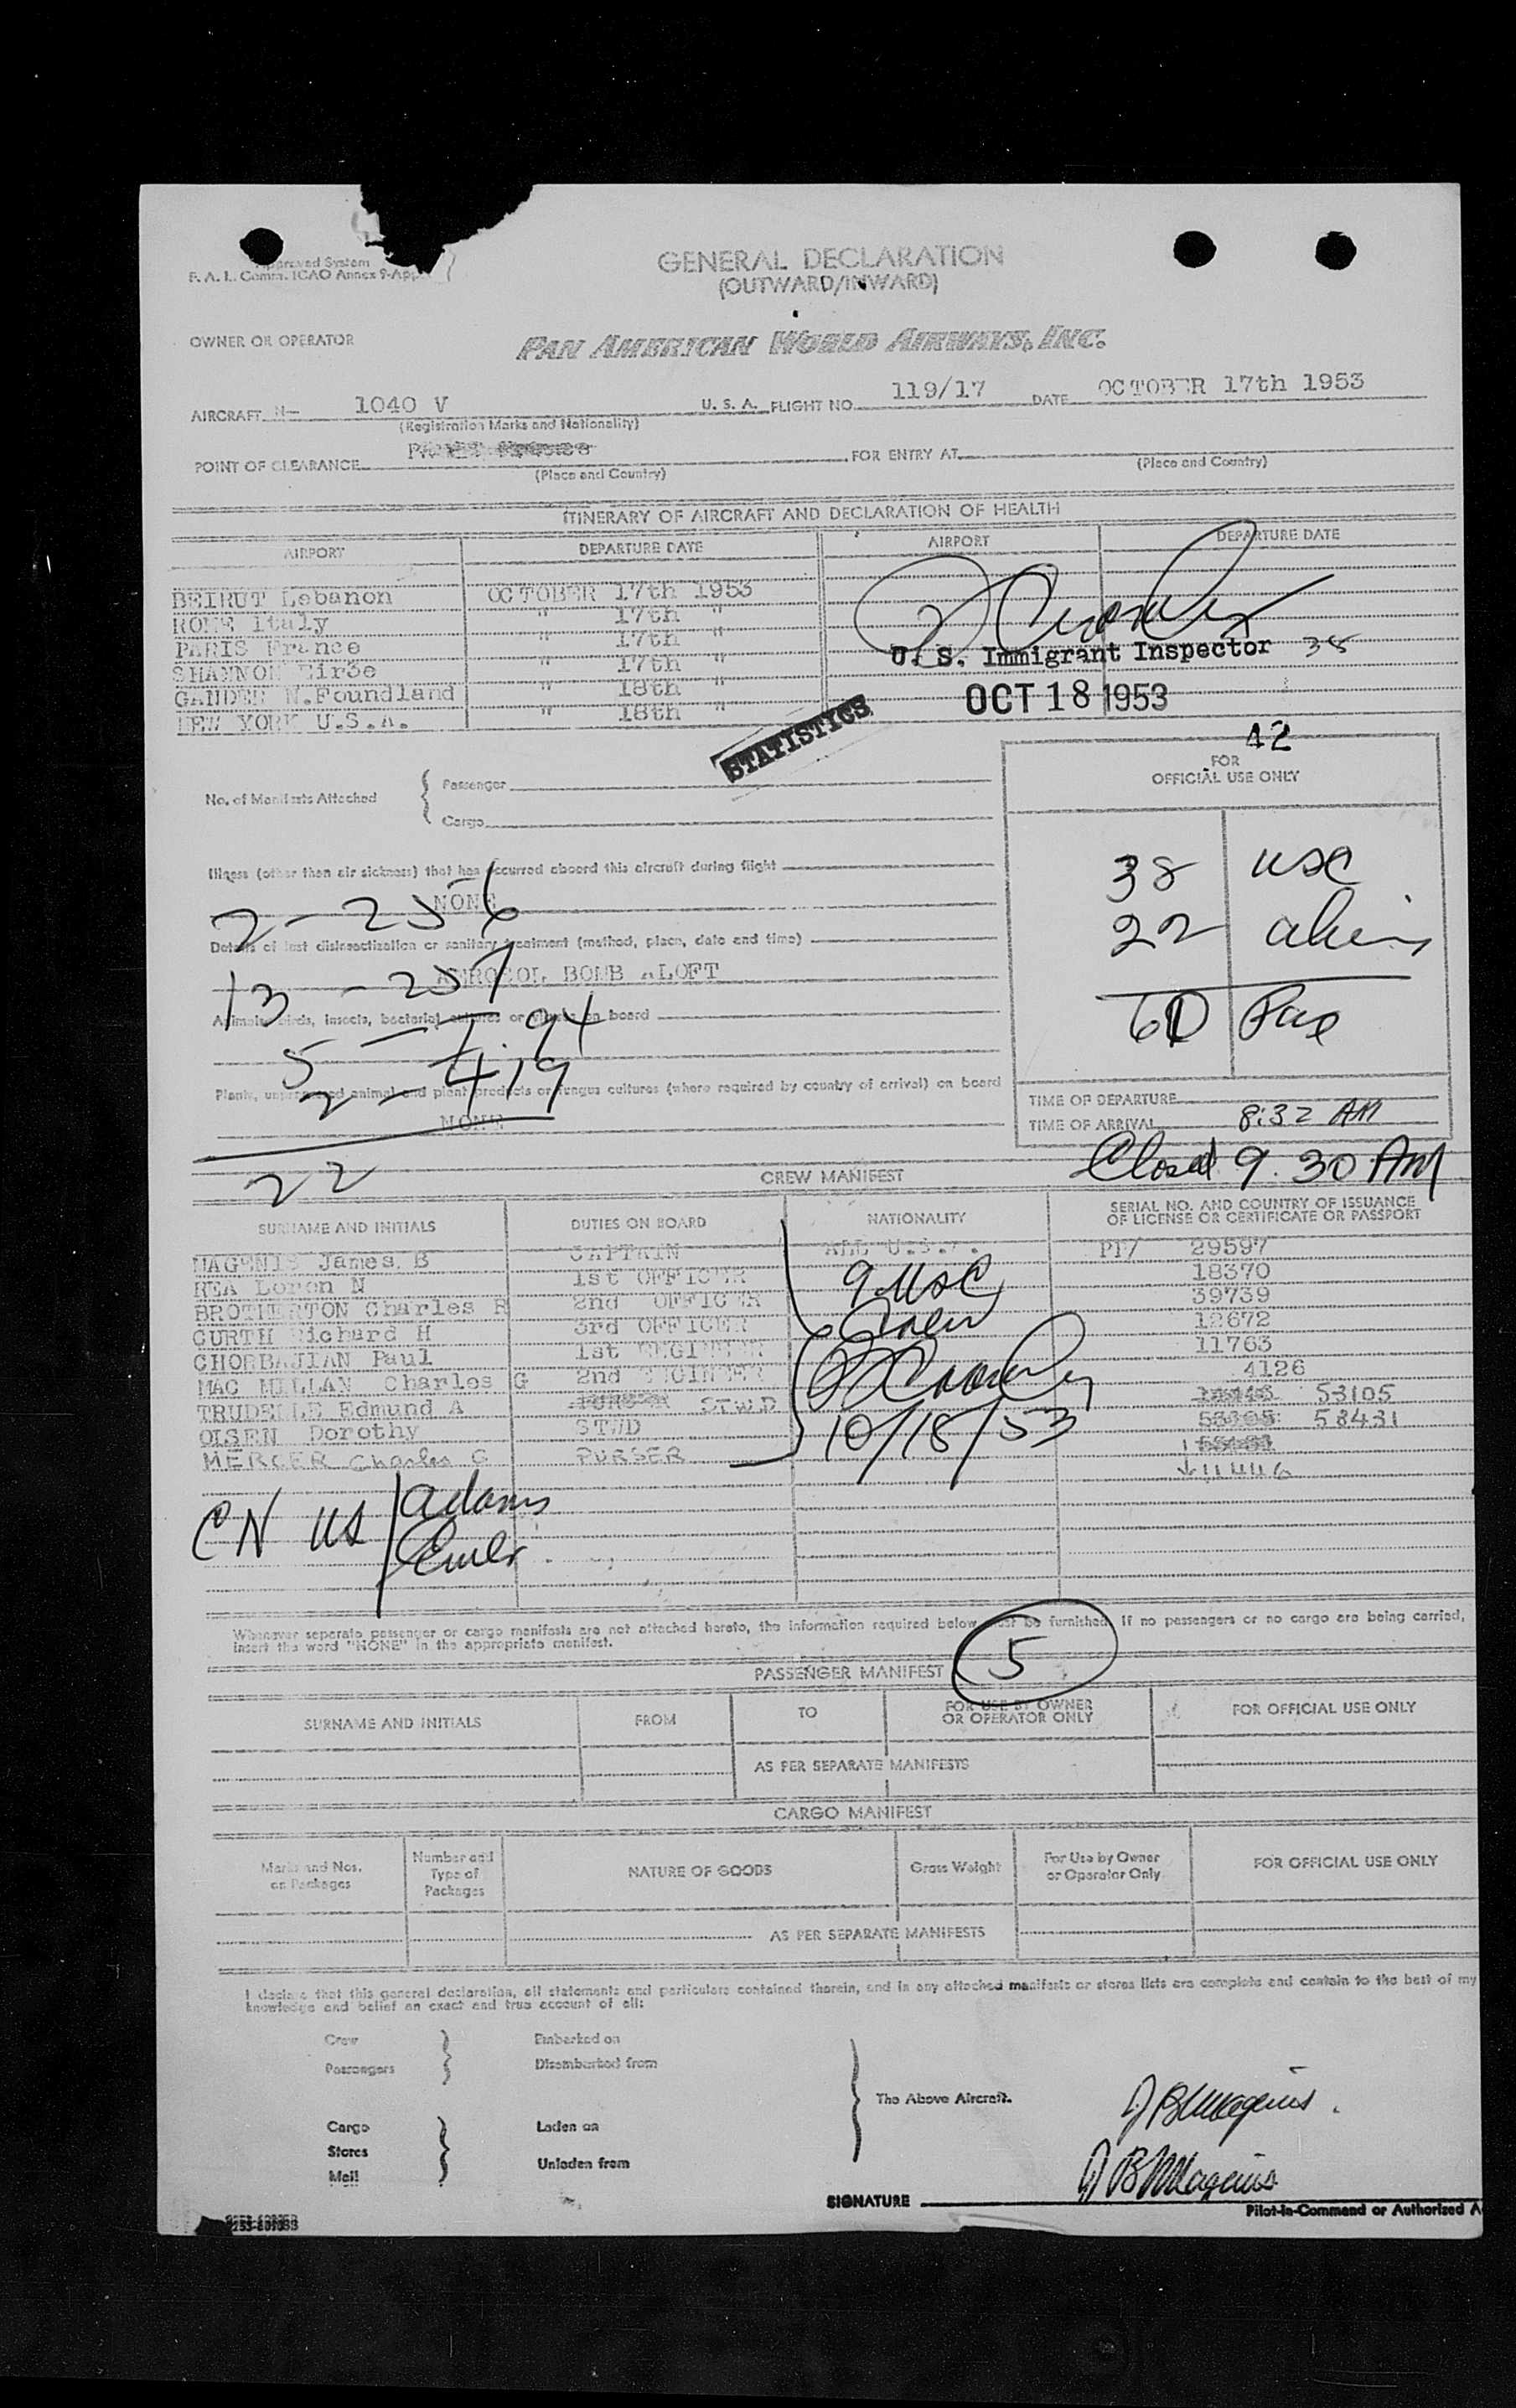 Approved System
F. A. L. Comm. ICAO Annex 9-App.
GENERAL DECLARATION
(OUTWARD/INWARD)
OWNER OR OPERATOR PAN AMERICAN WORLD AIRWAYS, INC.
AIRCRAFT N- 1040 V U. S. A. FLIGHT NO. 119/17 DATE OCTOBER 17th 1953
(Registration Marks and Nationality)
POINT OF CLEARANCE FOR ENTRY AT
(Place and Country) (Place and Country)
ITINERARY OF AIRCRAFT AND DECLARATION OF HEALTH
AIRPORT DEPARTURE DATE AIRPORT DEPARTURE DATE
BEIRUT Lebanon OCTOBER 17th 1953
ROME Italy " 17th "
PARIS France " 17th "
SHANNON " 17th "
GANDER N.Foundland " 18th "
NEW YORK U.S.A. " 18th "
U. S. Immigrant Inspector 38
OCT 18 1953
STATISTICS
42
FOR
OFFICIAL USE ONLY
No. of Manifests Attached
Passenger
Cargo
38 USC
22 aliens
60 Pax
Illness (other than air sickness) that has occurred aboard this aircraft during flight
NONE
2 - 256
Details of last disinsectization or sanitary treatment (method, place, date and time)
AEROSOL BOMB ALOFT
13 - 257
Animals, birds, insects, bacterial cultures or viruses on board
5 - T. 94
Plants, unprocessed animal and plant products or fungus cultures (where required by country of arrival) on board
2 - 419
NONE
22
TIME OF DEPARTURE
TIME OF ARRIVAL 8:32 AM
Closed 9.30 AM
CREW MANIFEST
SURNAME AND INITIALS DUTIES ON BOARD NATIONALITY SERIAL NO. AND COUNTRY OF ISSUANCE OF LICENSE OR CERTIFICATE OR PASSPORT
MAGENIS James B CAPTAIN ALL U.S.A. PP/ 29597
REA Loron N 1st OFFICER 18370
BROTHERTON Charles R 2nd OFFICER 39739
CURTH Richard H 3rd OFFICER 12672
CHORBAJIAN Paul 1st ENGINEER 11763
MAC MILLAN Charles G 2nd ENGINEER 4126
TRUDELLE Edmund A STWD 53105
OLSEN Dorothy STWD 58431
MERCER Charles G PURSER 11446
9 USC
Crew
10/18/53
CN US / Adams
Whenever separate passenger or cargo manifests are not attached hereto, the information required below must be furnished. If no passengers or no cargo are being carried,
insert the word "NONE" in the appropriate manifest.
5
PASSENGER MANIFEST
SURNAME AND INITIALS FROM TO FOR USE BY OWNER OR OPERATOR ONLY FOR OFFICIAL USE ONLY
AS PER SEPARATE MANIFESTS
CARGO MANIFEST
Marks and Nos. on Packages Number and Type of Packages NATURE OF GOODS Gross Weight For Use by Owner or Operator Only FOR OFFICIAL USE ONLY
AS PER SEPARATE MANIFESTS
I declare that this general declaration, all statements and particulars contained therein, and in any attached manifests or stores lists are complete and contain to the best of my
knowledge and belief an exact and true account of all:
Crew Embarked on
Passengers Disembarked from
The Above Aircraft.
Cargo Laden on
Stores
Mail Unladen from
J B Magenis.
J B Magenis
SIGNATURE
Pilot-in-Command or Authorized A